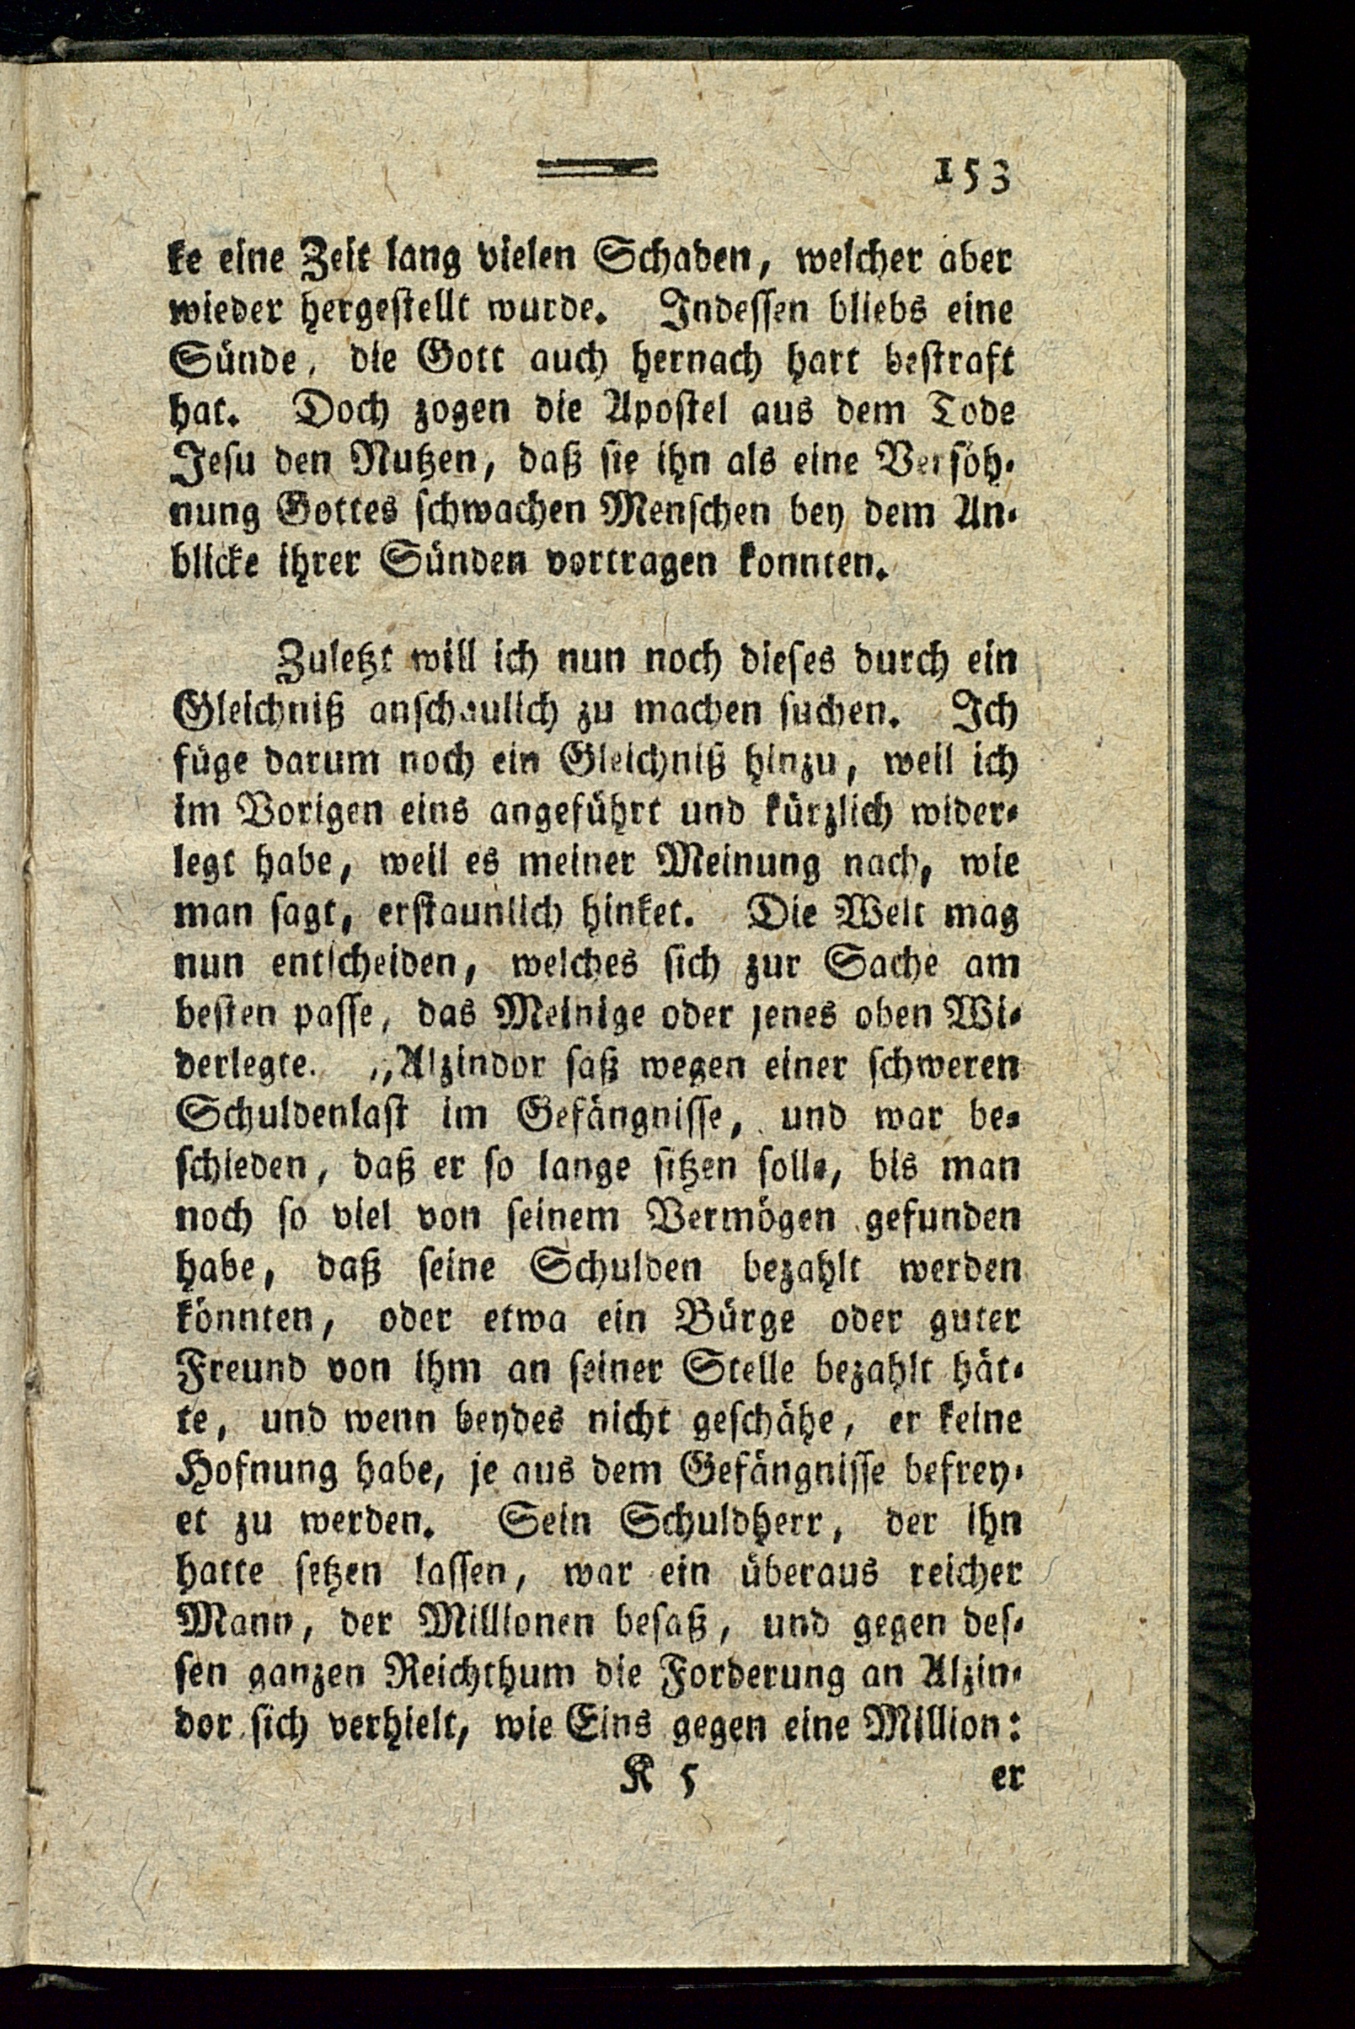 153
ke eine Zeit lang vielen Schaden, welcher aber
wieder hergestellt wurde. Indessen bliebs eine
Sünde, die Gott auch hernach hart bestraft
hat. Doch zogen die Apostel aus dem Tode
Jesu den Nutzen, daß sie ihn als eine Versöh-
nung Gottes schwachen Menschen bey dem An-
blicke ihrer Sünden vortragen konnten.
Zuletzt will ich nun noch dieses durch ein
Gleichniß anschaulich zu machen suchen. Ich
füge darum noch ein Gleichniß hinzu, weil ich
im Vorigen eins angeführt und kürzlich wider-
legt habe, weil es meiner Meinung nach, wie
man sagt, erstaunlich hinket. Die Welt mag
nun entscheiden, welches sich zur Sache am
besten passe, das Meinige oder jenes oben Wi-
derlegte. „Alzindor saß wegen einer schweren
Schuldenlast im Gefängnisse, und war be-
schieden, daß er so lange sitzen solle, bis man
noch so viel von seinem Vermögen gefunden
habe, daß seine Schulden bezahlt werden
könnten, oder etwa ein Bürge oder guter
Freund von ihm an seiner Stelle bezahlt hät-
te, und wenn beydes nicht geschähe, er keine
Hofnung habe, je aus dem Gefängnisse befrey-
et zu werden. Sein Schuldherr, der ihn
hatte setzen lassen, war ein überaus reicher
Mann, der Millionen besaß, und gegen des-
sen ganzen Reichthum die Forderung an Alzin-
dor sich verhielt, wie Eins gegen eine Million:
K 5 er